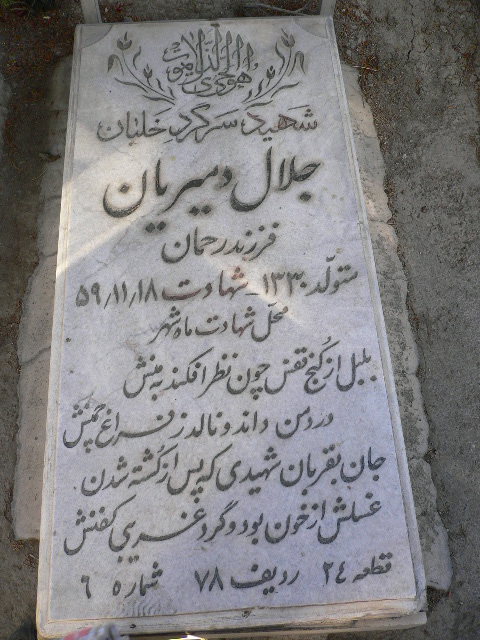 هوالحی الذی لایموت
شهید سرگرد خلبان
جلال دمیریان
فرزند رحمان
متولد ۱۳۳۰ - شهادت ۵۹/۱۱/۱۸
محل شهادت ماهشهر
بلبل از کنج قفس چون نظر افکند به منش
درد من داند و نالد ز فراغ چمنش
جان بقربان شهیدی که پس از کشته شدن
غسلش از خون بود و گرد غریبی کفنش
قطعه ۲٤ ردیف ۷۸ شماره ۶